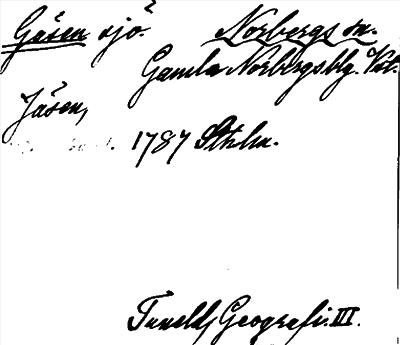 Gåsen sjö. Norbergs sn.
Gamla Norbergsblg. Vstl.
Jåsen,
1787 Sthlm.
Tuneld, Geografi. III.